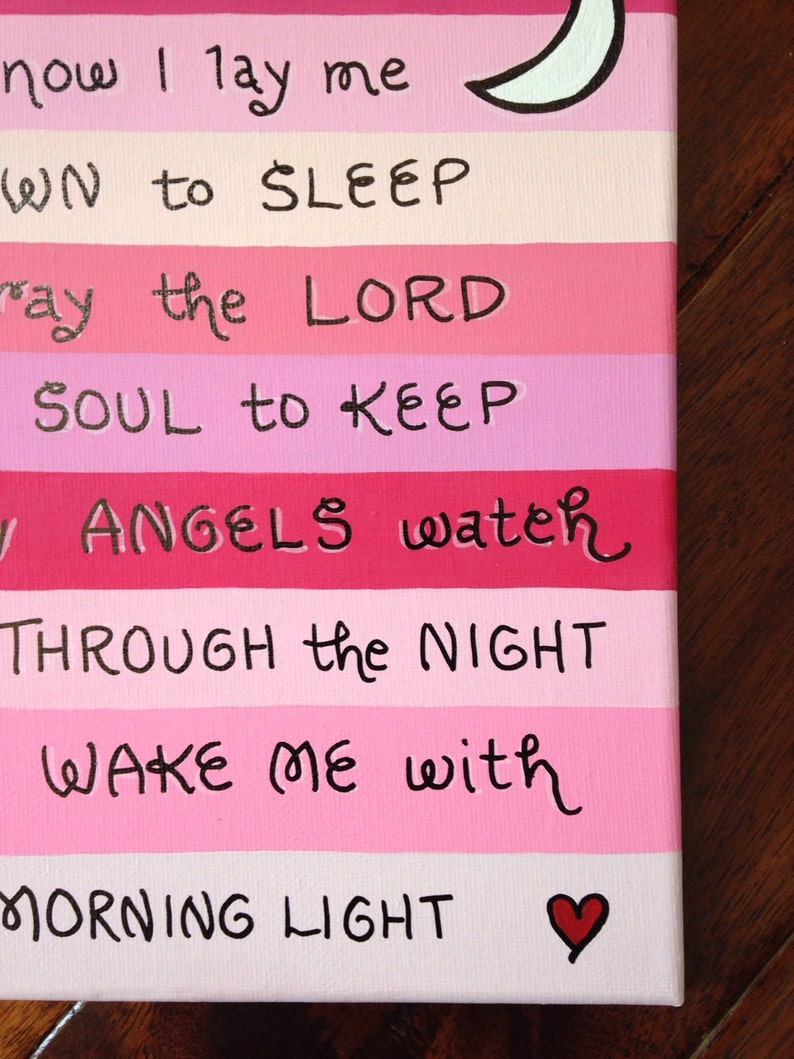 now I lay me
WN to SLEEP
ray the LORD
SOUL to KEEP
y ANGELS watch
THROUGH the NIGHT
WAKE ME with
MORNING LIGHT